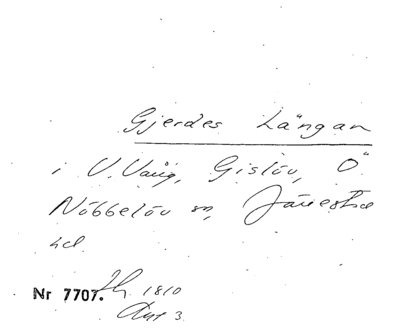 Gjerdes Längan
i V. Vång, Gislöv, Ö
Nöbbelöv sn, Järrestad
hd.
Nr 7707. 1810
3